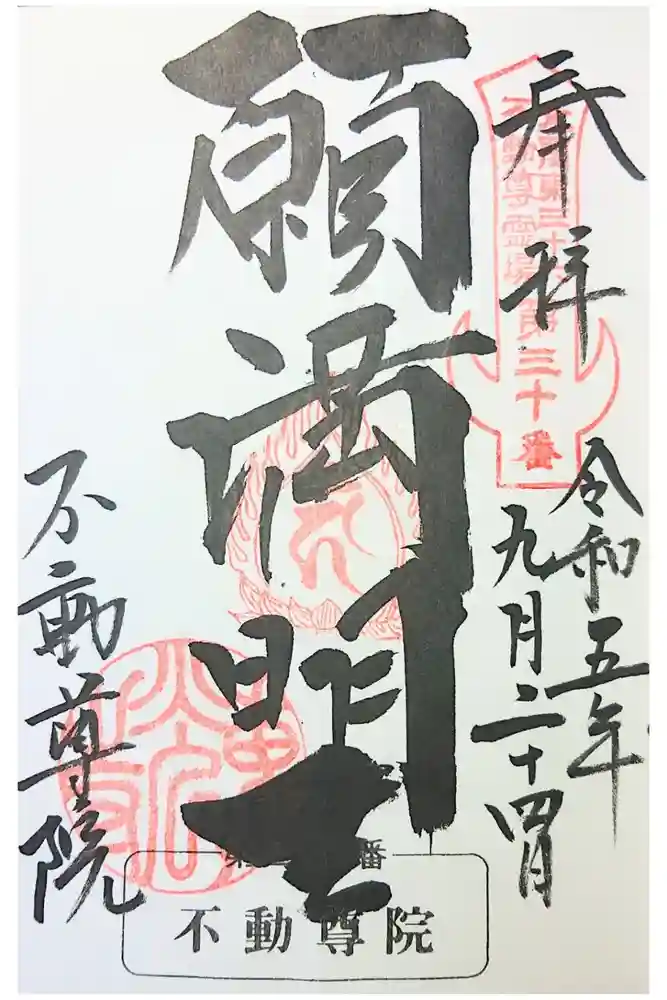 奉拝
東三十
不動尊霊場第三十番
令和五年
九月二十四日
願満明王
不動尊院
番
不動尊院